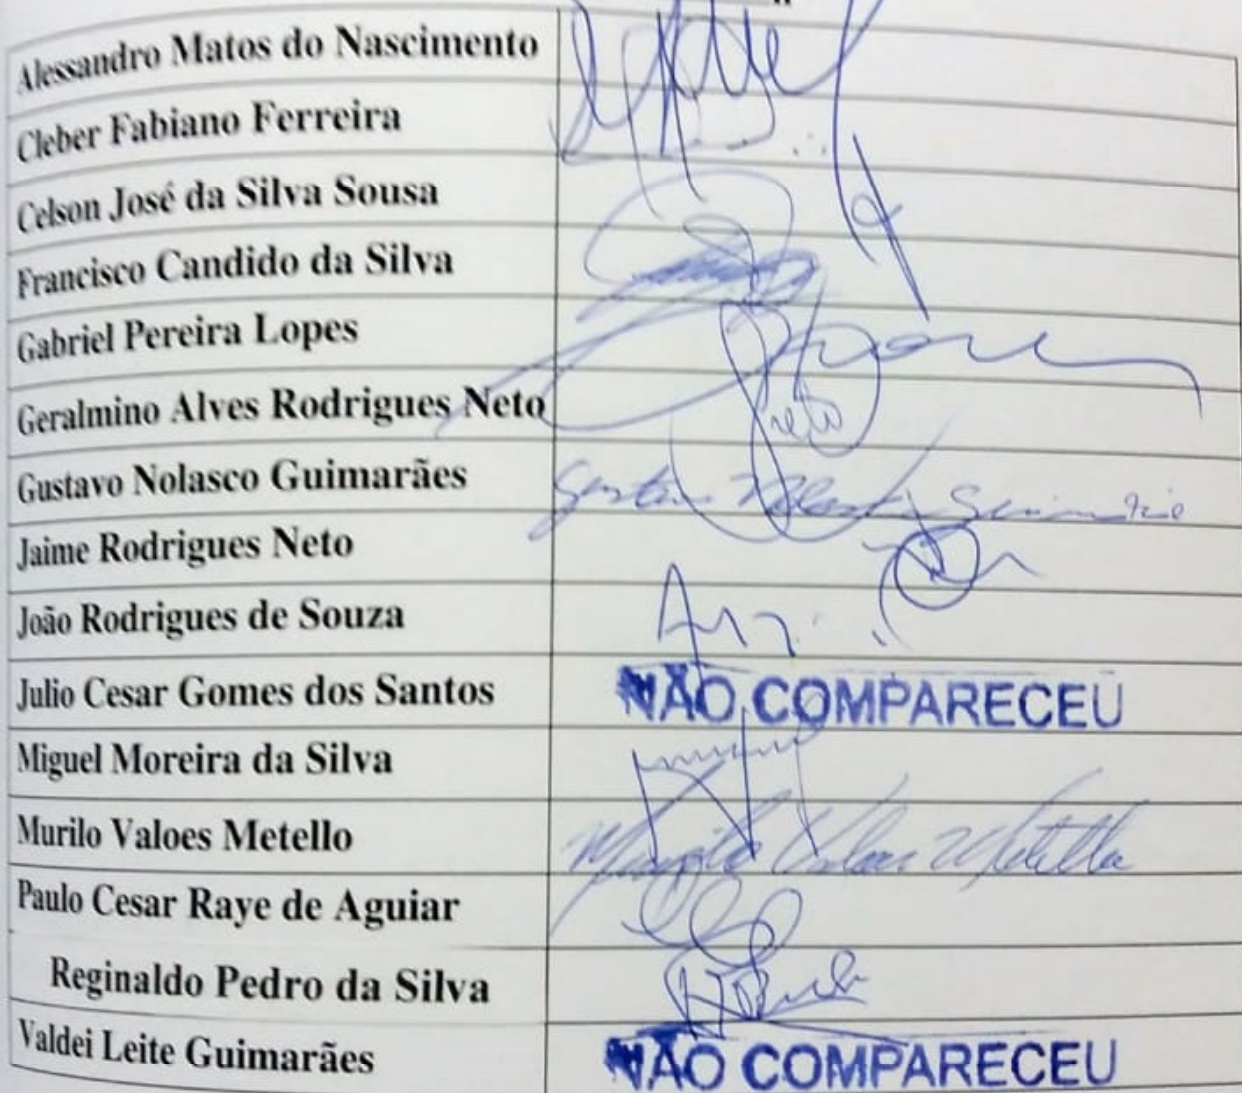 Alessandro Matos do Nascimento
Cleber Fabiano Ferreira
Celson José da Silva Sousa
Francisco Candido da Silva
Gabriel Pereira Lopes
Geralmino Alves Rodrigues Neto
neto
Gustavo Nolasco Guimarães
Jaime Rodrigues Neto
João Rodrigues de Souza
Julio Cesar Gomes dos Santos NÃO COMPARECEU
Miguel Moreira da Silva
Murilo Valoes Metello Murilo Valoes Metello
Paulo Cesar Raye de Aguiar
Reginaldo Pedro da Silva
Valdei Leite Guimarães NÃO COMPARECEU